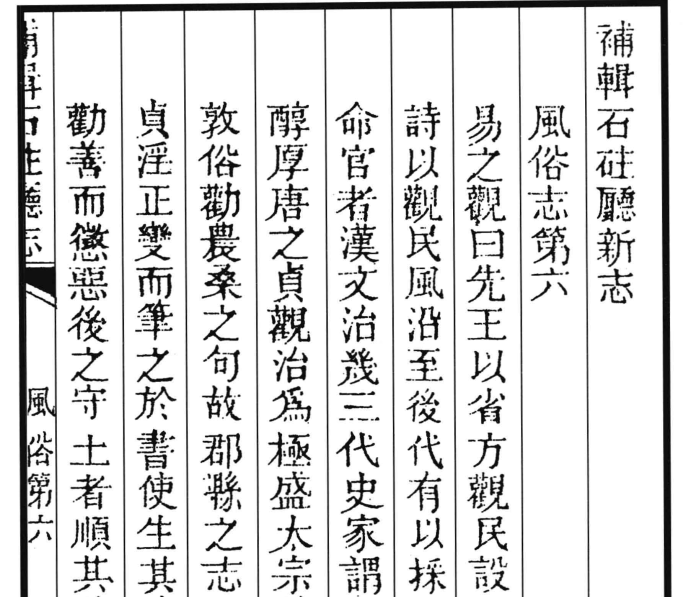 補輯石砫廳新志
風俗志第六
易之觀曰先王以省方觀民設
詩以觀民風沿至後代有以採
命官者漢文治幾三代史家謂
醇厚唐之貞觀治為極盛太宗
敦俗勸農桑之句故郡縣之志
貞淫正變而筆之於書使生其
勸善而懲惡後之守土者順其
補輯石砫廳志
風俗第六